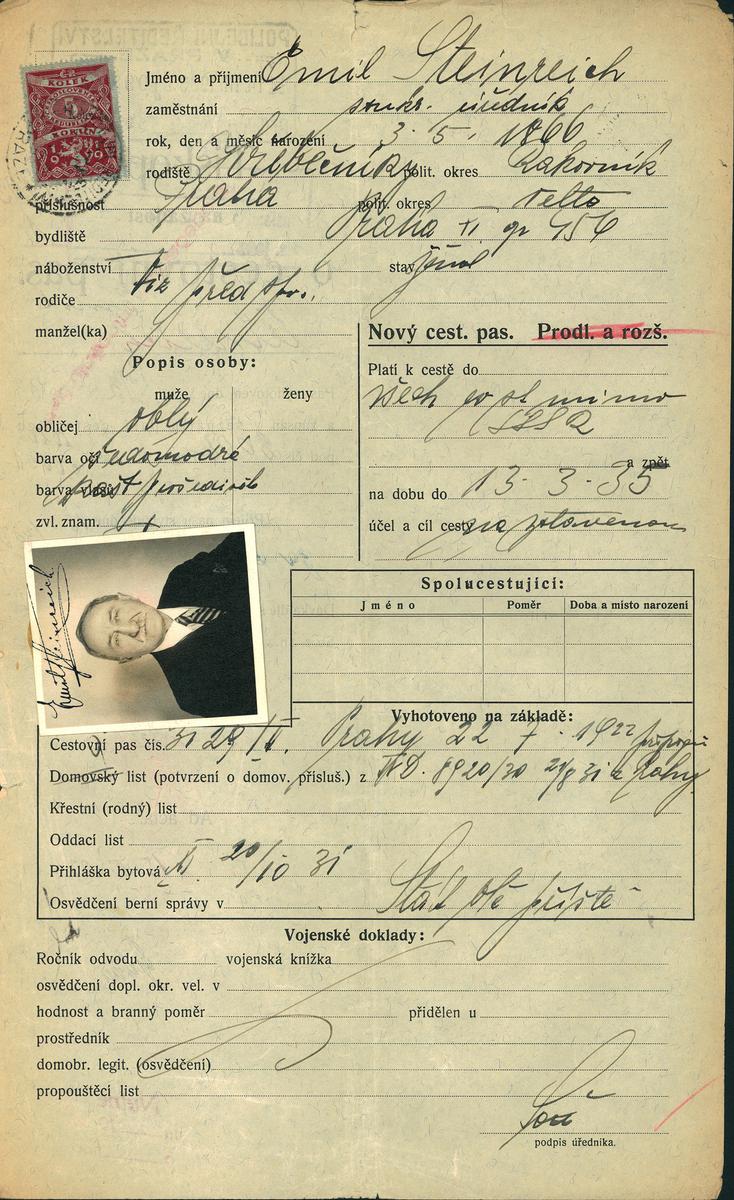 KOLEK
KORUN
1919
Jméno a příjmení Emil Steinreich
zaměstnání soukr. úředník
rok, den a měsíc narození 3. 5. 1866
rodiště polit. okres Rakovník
příslušnost Praha polit. okres
bydliště Praha XI 456
náboženství stav
rodiče viz před spr.
manžel(ka)
Nový cest. pas. Prodl. a rozš.
Popis osoby:
muže ženy
obličej oblý
barva očí šedomodré
barva vlasů prošedivělé
zvl. znam. +
Platí k cestě do
všech evst mimo
SSSR
a zpět
na dobu do 13. 3. 35
účel a cíl cesty na zotavenou
Emil Steinreich
Spolucestující:
Jméno Poměr Doba a místo narození
Vyhotoveno na základě:
Cestovní pas čís. 3129/IV. Prahy 22 7. 1922
Domovský list (potvrzení o domov. přísluš.) z 8920/30 21/8 31 z Prahy
Křestní (rodný) list
Oddací list
Přihláška bytová XI. 20/10 31
Osvědčení berní správy v
Stát obč příště
Vojenské doklady:
Ročník odvodu vojenská knížka
osvědčení dopl. okr. vel. v
hodnost a branný poměr přidělen u
prostředník
domobr. legit. (osvědčení)
propouštěcí list
podpis úředníka.